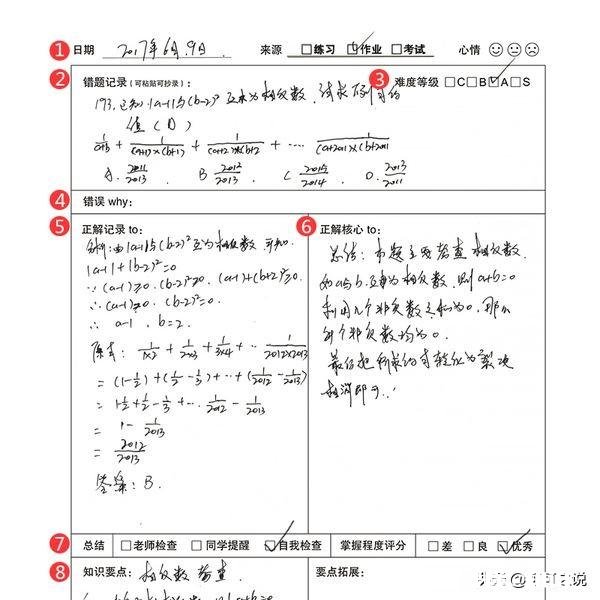 1 日期 2017年6月9日. 来源 □练习 ☑作业 □考试 心情
2 错题记录(可粘贴可抄录): 3 难度等级 □C□B☑A□S
173.已知|a-1|与(b-2)² 互为相反数,试求下列
值(D)
1/ab + 1/(a+1)×(b+1) + 1/(a+2)×(b+2 + … 1/(a+2011)×(b+2011
A. 2011/2013. B 2012/2013. C 2015/2014. D. 2013/2011
4 错误 why:
5 正解记录 to:
分析:由|a-1|与(b-2)²互为相反数 可知
|a-1|+(b-2)²=0
∵(a-1)≥0.(b-2)²≥0. (a-1)+(b+2)²≥0.
∴(a-1)≥0. (b-2)²=0.
∴ a-1 . b=2.
原式: 1/1×2 + 1/2×3 + 1/3×4 + … 1/2012×2013
= (1-1/2)+(1/2-1/3)+…+(1/2012-1/2013)
= 1-1/2+1/2-1/3+… 1/2012-1/2013
= 1-1/2013
= 2012/2013
答案: B.
6 正解核心 to:
总结: 本题主要考查相反数.
如a与b.互为相反数,则a+b=0
利用几个非负数之和为0.那么
每个非负数均为0.
最后把所求的式转化为裂项
相消即可.
7 总结 □老师检查 □同学提醒 ☑自我检查 掌握程度评分 □差 □良 ☑优秀
8 知识要点: 相反数 考查. 要点拓展:
头条@